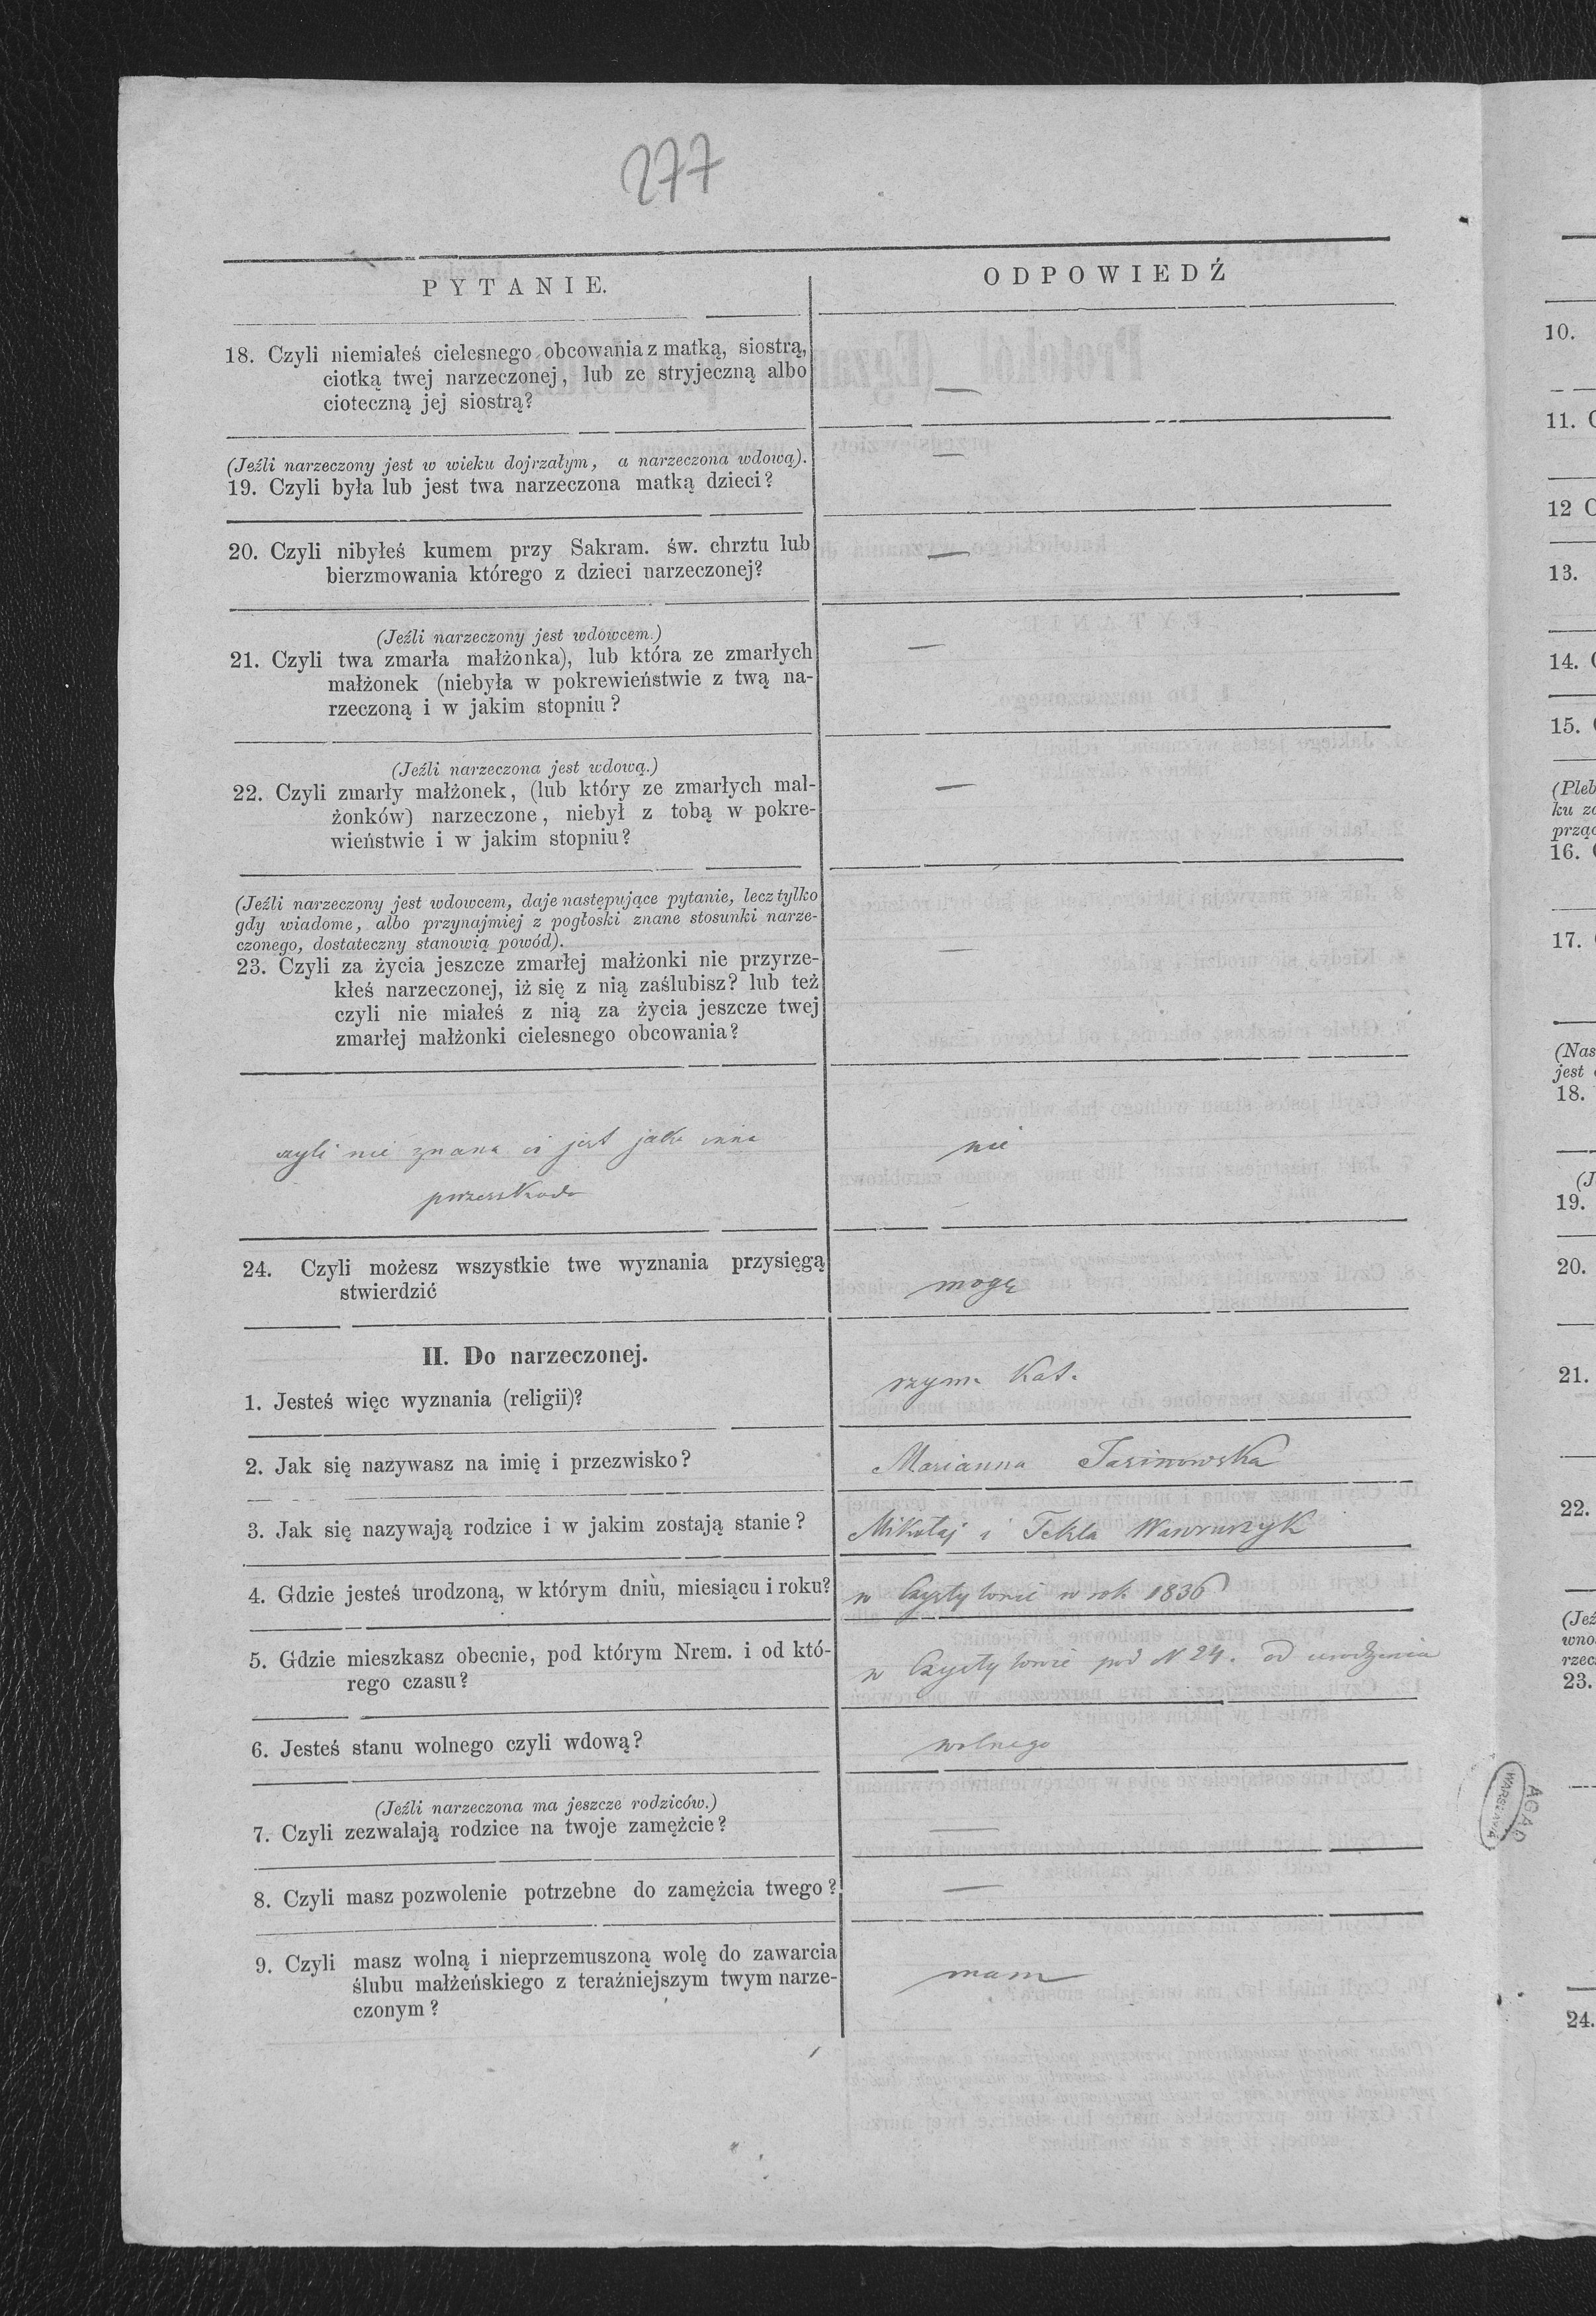 277
PYTANIE.
ODPOWIEDŹ
18. Czyli niemiałeś cielesnego obcowania z matką, siostrą,
ciotką twej narzeczonej, lub ze stryjeczną albo
cioteczną jej siostrą?
—
(Jeźli narzeczony jest w wieku dojrzałym, a narzeczona wdową).
19. Czyli była lub jest twa narzeczona matką dzieci?
—
20. Czyli nibyłeś kumem przy Sakram. św. chrztu lub
bierzmowania którego z dzieci narzeczonej?
—
(Jeźli narzeczony jest wdowcem.)
21. Czyli twa zmarła małżonka), lub która ze zmarłych
małżonek (niebyła w pokrewieństwie z twą na-
rzeczoną i w jakim stopniu?
—
(Jeźli narzeczona jest wdową.)
22. Czyli zmarły małżonek, (lub który ze zmarłych mał-
żonków) narzeczone, niebył z tobą w pokre-
wieństwie i w jakim stopniu?
—
(Jeźli narzeczony jest wdowcem, daje następujące pytanie, lecz tylko
gdy wiadome, albo przynajmiej z pogłoski znane stosunki narze-
czonego, dostateczny stanowią powód).
23. Czyli za życia jeszcze zmarłej małżonki nie przyrze-
kłeś narzeczonej, iż się z nią zaślubisz? lub też
czyli nie miałeś z nią za życia jeszcze twej
zmarłej małżonki cielesnego obcowania?
—
czyli nie znana ci jest jaka inna
przeszkoda
nie
24. Czyli możesz wszystkie twe wyznania przysięgą
stwierdzić
mogę
II. Do narzeczonej.
1. Jesteś więc wyznania (religii)?
rzym. Kat.
2. Jak się nazywasz na imię i przezwisko?
Marianna Jasinowska
3. Jak się nazywają rodzice i w jakim zostają stanie?
Mikołaj i Tekla Wawruszyk
4. Gdzie jesteś urodzoną, w którym dniu, miesiącu i roku?
w Czystyłowie w rok 1836
5. Gdzie mieszkasz obecnie, pod którym Nrem. i od któ-
rego czasu?
w Czystyłowie pod N 24. od urodzenia
6. Jesteś stanu wolnego czyli wdową?
wolnego
(Jeźli narzeczona ma jeszcze rodziców.)
7. Czyli zezwalają rodzice na twoje zamężcie?
—
8. Czyli masz pozwolenie potrzebne do zamężcia twego?
—
9. Czyli masz wolną i nieprzemuszoną wolę do zawarcia
ślubu małżeńskiego z teraźniejszym twym narze-
czonym?
mam
10.
11. C
12 C
13.
14. C
15. C
(Pleb
ku za
prząd
16. C
17. C
(Nas
jest
18.
(J
19.
20.
21.
22.
(Jeź
wno
rzec
23.
24.
AGAD
WARSZAWA